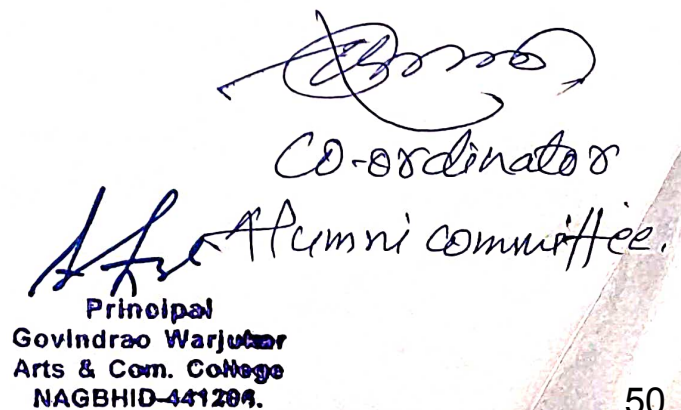 Co-ordinator
Alumni committee.
Principal
Govindrao Warjukar
Arts & Com. College
NAGBHID-441205.
50